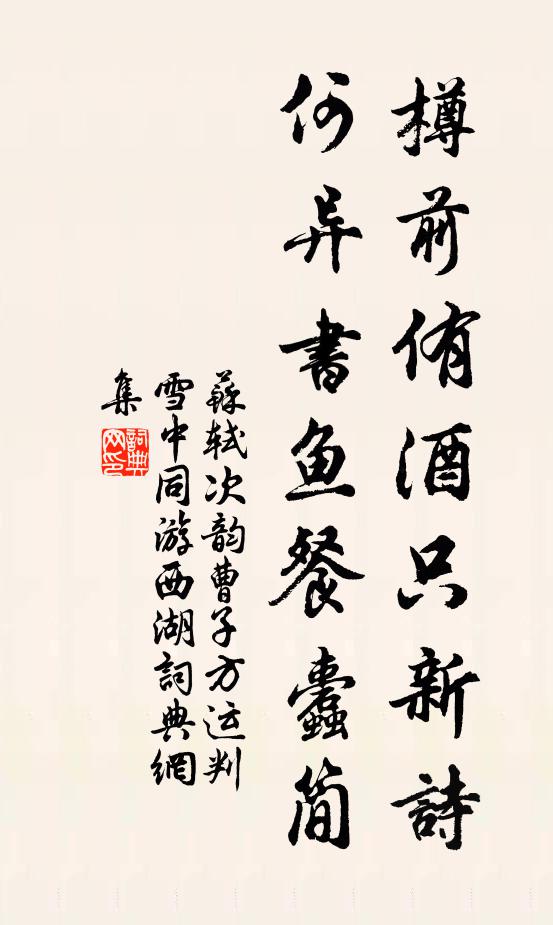 樽前侑酒只新詩
何异書鱼餐蠹简
蘇轼次韵曹子方运判
雪中同游西湖詞典網
集
詞典网印